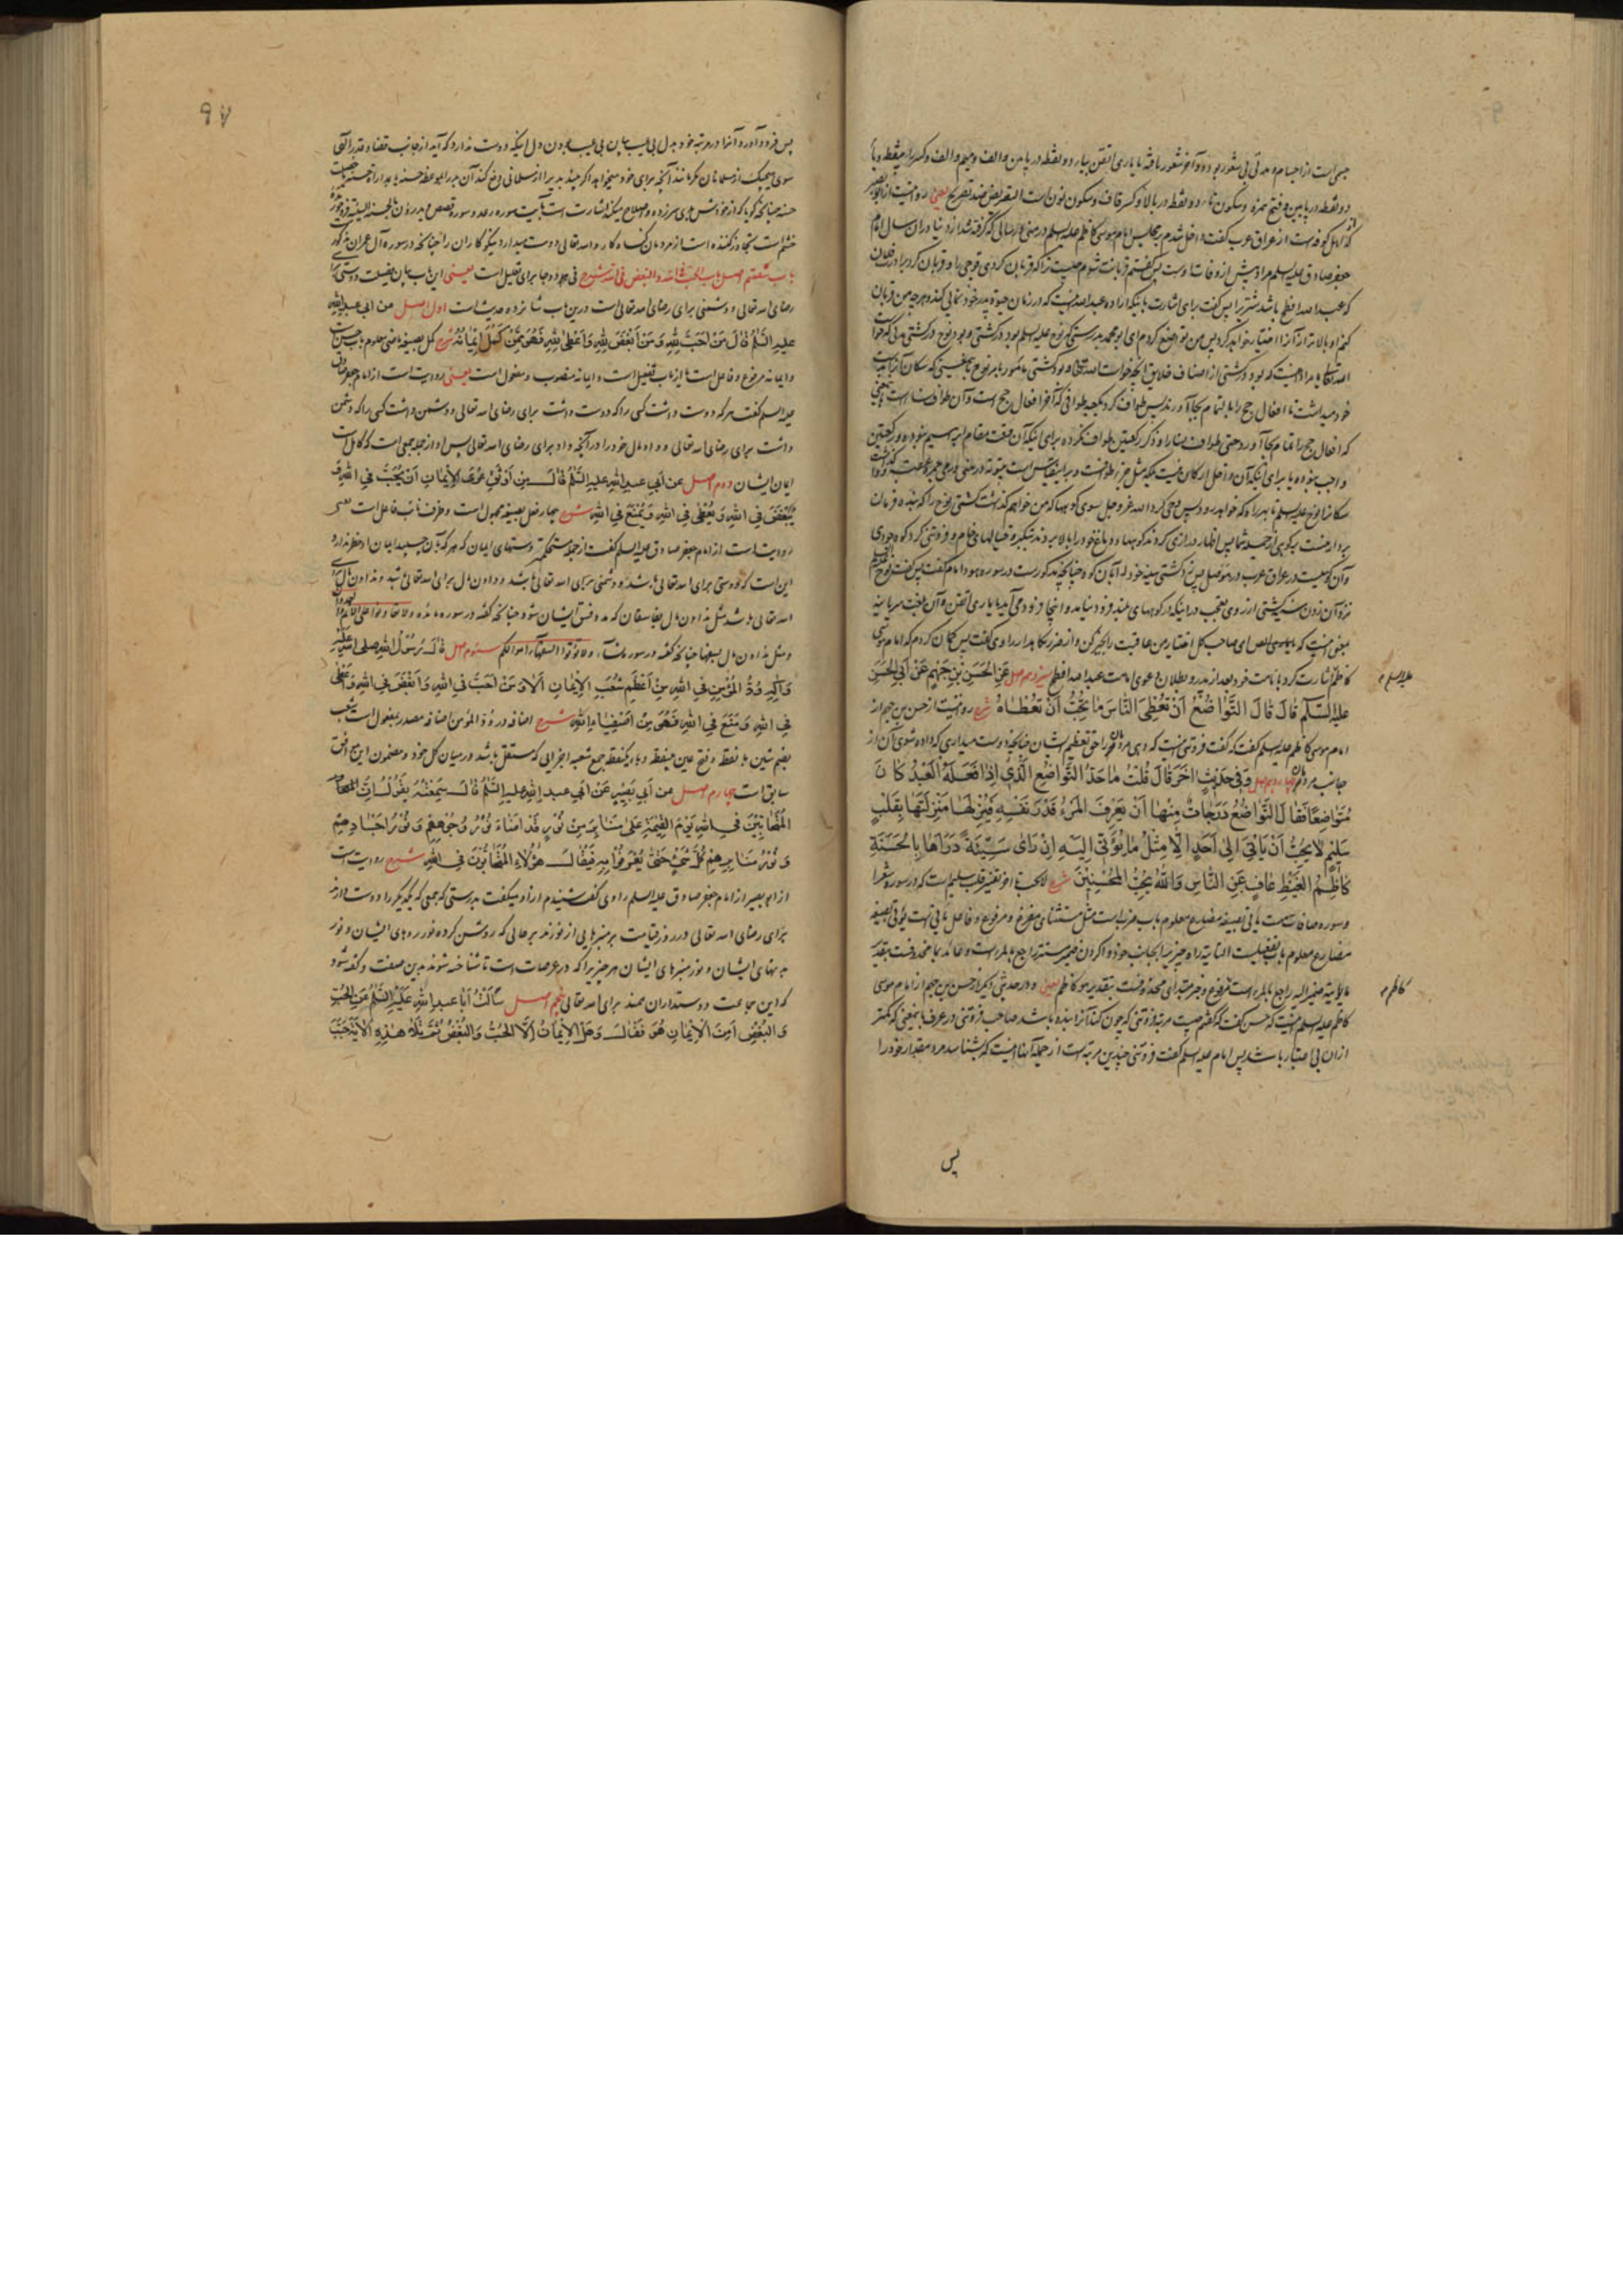 جسمی است از اجسام و مدتی بی شعور بوده و آخر شعور یافته یا باری اتقن بیاء دو نقطه در پایین و الف و میم و الف و کسر راء بینقطه و یاء
دو نقطه در پایین و فتح همزه و سکون تاء دو نقطه در بالا و کسر قاف و سکون نون است التعریض ضد تصریح یعنی روایتست از ابو بصیر
که اهل کوفه است از عراق عرب گفت داخل شدم بمجلس امام موسی کاظم علیه السلم در منی در سالی که گرفته شد از دنیا در آن سال امام
جعفر صادق علیه السلم مراد پیش از وفات اوست پس گفتم قربانت شوم چیست ترا که قربان کردی قوچی را و قربان کرد برادرت فلان
که عبد الله افطح باشد شتر پس گفت برای اشارت باینکه اراده عبد الله اینست که در زمان حیوة پدر خودنمایی کند و هر چه من قربان
کنم او بالاتر از آنرا اختیار خواهد کرد پس من تواضع کردم ای ابو محمد بدرستی که نوح علیه السلم بود در کشتی و بود نوح در کشتی مدتی که خواست
الله تعالی مراد اینست که بود در کشتی از اصناف خلایق آنچه خواست الله تعالی و بود کشتی مامور بامر نوح
خود میداشت تا افعال حج را بالتمام بجا آورند پس طواف کرد بکعبه طوافی که آخر افعال حج است و آن طواف نسا است یعنی
که افعال حج را تمام بجا آورد حتی طواف نسا را و ذکر رکعتین طواف نکرده برای اینکه آن وقت مقام ابراهیم نبوده و رکعتین
واجب نبوده یا برای اینکه آن داخل ارکان نیست بلکه مثل جزء طوافست
سکانرا نوح علیه السلم تا بهر راه که خواهد رود پس وحی کرد الله عز و جل سوی کوهها که من خواهم گذاشت کشتی نوح را که بنده فرمان
بردار منست بر کوهی از جمله شما پس اظهار درازی کردند کوهها و دماغ خود را بالا بردند بتکبر و خیالهای خام و فروتنی کرد کوه جودی
و آن کوهیست در عراق عرب در موصل پس زد کشتی سینه خود را بآن کوه چنانچه مذکور است در سوره هود امام گفت پس گفت نوح علیه السلم
نزد آن زدن سینه کشتی از روی تعجب در اینکه از کوههای بلند فرود نیامد و اینجا فرود می آید یا باری اتقن و آن بلغت سریانیه
بمعنی اینست که ای صاحب کل اختیار من عاقبت را بخیر کن و از ضرر نگاه دار راوی گفت پس گمان کردم که امام موسی
کاظم اشارت کرد بامامت خود بعد از پدر و بطلان دعوی امامت عبد الله افطح سیزدهم اصل عَنِ الْحَسَنِ بْنِ جَهْمٍ عَنْ أَبِي الْحَسَنِ
علیه السلم
عَلَيْهِ السَّلَمِ قَالَ قَالَ التَّوَاضُعُ أَنْ تُعْطِيَ النَّاسَ مَا تُحِبُّ أَنْ تُعْطَاهُ شرح روایتست از حسن بن جهم از
امام موسی کاظم علیه السلم گفت که گفت فروتنی اینست که دهی مردمان را حق تعظیم ایشان چنانچه دوست میداری که داده شوی آن از
جانب مردمان چهاردهم اصل وَفِي حَدِيثٍ آخَرَ قَالَ قُلْتُ مَا حَدُّ التَّوَاضُعِ الَّذِي إِذَا فَعَلَهُ الْعَبْدُ كَانَ
مُتَوَاضِعًا فَقَالَ التَّوَاضُعُ دَرَجَاتٌ مِنْهَا أَنْ يَعْرِفَ الْمَرْءُ قَدْرَ نَفْسِهِ فَيُنْزِلَهَا مَنْزِلَتَهَا بِقَلْبٍ
سَلِيمٍ لَا يُحِبُّ أَنْ يَأْتِيَ إِلَى أَحَدٍ إِلَّا مِثْلَ مَا يُؤْتَى إِلَيْهِ إِنْ رَأَى سَيِّئَةً دَرَأَهَا بِالْحَسَنَةِ
كَاظِمُ الْغَيْظِ عَافٍ عَنِ النَّاسِ وَاللَّهُ يُحِبُّ الْمُحْسِنِينَ شرح لا یحب تا آخر تفسیر قلب سلیم است که در سوره شعرا
و سوره صافات است یاتی بصیغه مضارع معلوم باب ضرب است مثل مستثنای مفرغ و مرفوع و فاعل یاتی است یؤتی بصیغه
مضارع معلوم باب تفعیلست
ما یؤتیه ضمیر الیه راجع بالمرء است مرفوع و خبر مبتدای محذوفست بتقدیر هو کاظم یعنی و در حدیثی دیگر از حسن بن جهم از امام موسی
کاظم
کاظم علیه السلم اینست که حسن گفت که گفتم چیست مرتبه فروتنی که چون کند آنرا بنده باشد صاحب فروتنی در عرف بامعنی که کمتر
از آن بی اعتبار باشد پس امام علیه السلم گفت فروتنی چندین مرتبه است از جمله آنها اینست که بشناسد مرد مقدار خود را
پس
۹۷
پس فرود آورد آنرا در مرتبه خود بدل بی عیب بیان بی عیب بودن دل اینکه دوست ندارد که آید از جانب قضا و قدر الهی
سوی هیچیک از مسلمانان مگر مانند آنچه برای خود میخواهد اگر بیند بدی را از مسلمانی دفع کند آن بد را بموعظه حسنه یا بمدارا
حسنه چنانچه گویا که از خودش بدی سر زده و اصلاح میکند اشارتست بآیت سوره رعد و سوره قصص ویدرؤن بالحسنة السیئة فرو خورنده
خشم است تجاوز کننده است از مردمان گناه کار و الله تعالی دوست میدارد نیکو کاران را چنانچه در سوره آل عمران مذکور
باب شصتم اصل باب الحب فی الله و البغض فی الله شرح فی هر دو جا برای تعلیل است یعنی این باب بیان فضیلت دوستی برای
رضای الله تعالی و دشمنی برای رضای الله تعالی است درین باب شانزده حدیث است اول اصل عن ابي عبد الله
عليه السَّلَمُ قَالَ مَنْ أَحَبَّ لِلَّهِ وَمَنْ أَبْغَضَ لِلَّهِ وَأَعْطَى لِلَّهِ فَهُوَ مِمَّنْ كَمُلَ إِيمَانُهُ شرح کمل بصیغه ماضی معلوم باب حسن
و ایمانه مرفوع و فاعل است یا از باب تفعیل است و ایمانه منصوب و مفعول است یعنی روایت است از امام جعفر صادق
علیه السلم گفت هر که دوست داشت کسی را که دوست داشت برای رضای الله تعالی و دشمن داشت کسی را که دشمن
داشت برای رضای الله تعالی و داد مال خود را در آنچه داد برای رضای الله تعالی پس او از جمله جمعی است که کامل است
ایمان ایشان دوم اصل عن أبي عبد الله عليه السَّلَمُ قَالَ مِنْ أَوْثَقِ عُرَى الْإِيمَانِ أَنْ يُحَبَّ فِي اللهِ وَ
يُبْغَضَ فِي اللهِ وَ يُعْطَى فِي اللهِ وَ يُمْنَعَ فِي اللهِ شرح چهار فعل بصیغه مجهول است و ظرف نائب فاعل است یعنی
روایت است از امام جعفر صادق علیه السلم گفت از جمله مستحکمتر دستهای ایمان که هر که بآن چسبید ایمان او خطر ندارد
این است که دوستی برای الله تعالی باشد و دشمنی برای الله تعالی باشد و دادن مال برای الله تعالی باشد و ندادن مال برای
الله تعالی باشد مثل ندادن مال بفاسقان که مدد فسق ایشان شود چنانکه گفته در سوره مائده ولا تعاونوا على الاثم والعدوان
و مثل ندادن مال بسفها چنانکه گفته در سوره نساء ولا تؤتوا السفهاء اموالكم سیوم اصل قَالَ رَسُولُ اللهِ صلى الله عليه
وَآلِهِ وُدُّ الْمُؤْمِنِ فِي اللهِ مِنْ أَعْظَمِ شُعَبِ الْإِيمَانِ أَلَا وَ مَنْ أَحَبَّ فِي اللهِ وَأَبْغَضَ فِي اللهِ وَأَعْطَى
فِي اللهِ وَ مَنَعَ فِي اللهِ فَهُوَ مِنْ أَصْفِيَاءِ اللهِ شرح اضافه ود المؤمن اضافه مصدر بمفعول است شعب
بضم شین با نقطه و فتح عین بینقطه و باء یکنقطه جمع شعبه اجزایی که مستقل باشد در میان کل خود و مضمون این موافق
سابق است چهارم اصل عن أَبِي بَصِيرٍ عَنْ أَبِي عبد الله عليه السَّلَمُ قَالَ سَمِعْتُهُ يَقُولُ إِنَّ
الْمُتَحَابِّينَ فِي اللهِ يَوْمَ الْقِيٰمَةِ عَلَى مَنَابِرَ مِنْ نُورٍ قَدْ أَضَاءَ نُورُ وُجُوهِهِمْ وَ نُورُ أَجْسَادِهِمْ
وَ نُورُ مَنَابِرِهِمْ كُلَّ شَيْءٍ حَتَّى يُعْرَفُوا بِهِ فَيُقَالُ هٰؤُلَاءِ الْمُتَحَابُّونَ فِي اللهِ شرح روایت است
از ابو بصیر از امام جعفر صادق علیه السلم راوی گفت شنیدم از او میگفت بدرستی که جمعی که یکدیگر را دوست دارند
برای رضای الله تعالی در روز قیامت بر منبرهایی از نورند بر حالی که روشن کرده نور روهای ایشان و نور
بدنهای ایشان و نور منبرهای ایشان هر چیز را که در عرصات است تا شناخته شوند بدین صفت و گفته شود
که این جماعت دوستداران همند برای الله تعالی پنجم اصل سَأَلْتُ أَبَا عبد اللهِ عَلَيْهِ السَّلَمُ عَنِ الْحُبِّ
وَ الْبُغْضِ أَمِنَ الْإِيمَانِ هُوَ فَقَالَ وَ هَلِ الْإِيمَانُ إِلَّا الْحُبُّ وَ الْبُغْضُ ثُمَّ تَلَا هٰذِهِ الْآيَةَ حَبَّبَ